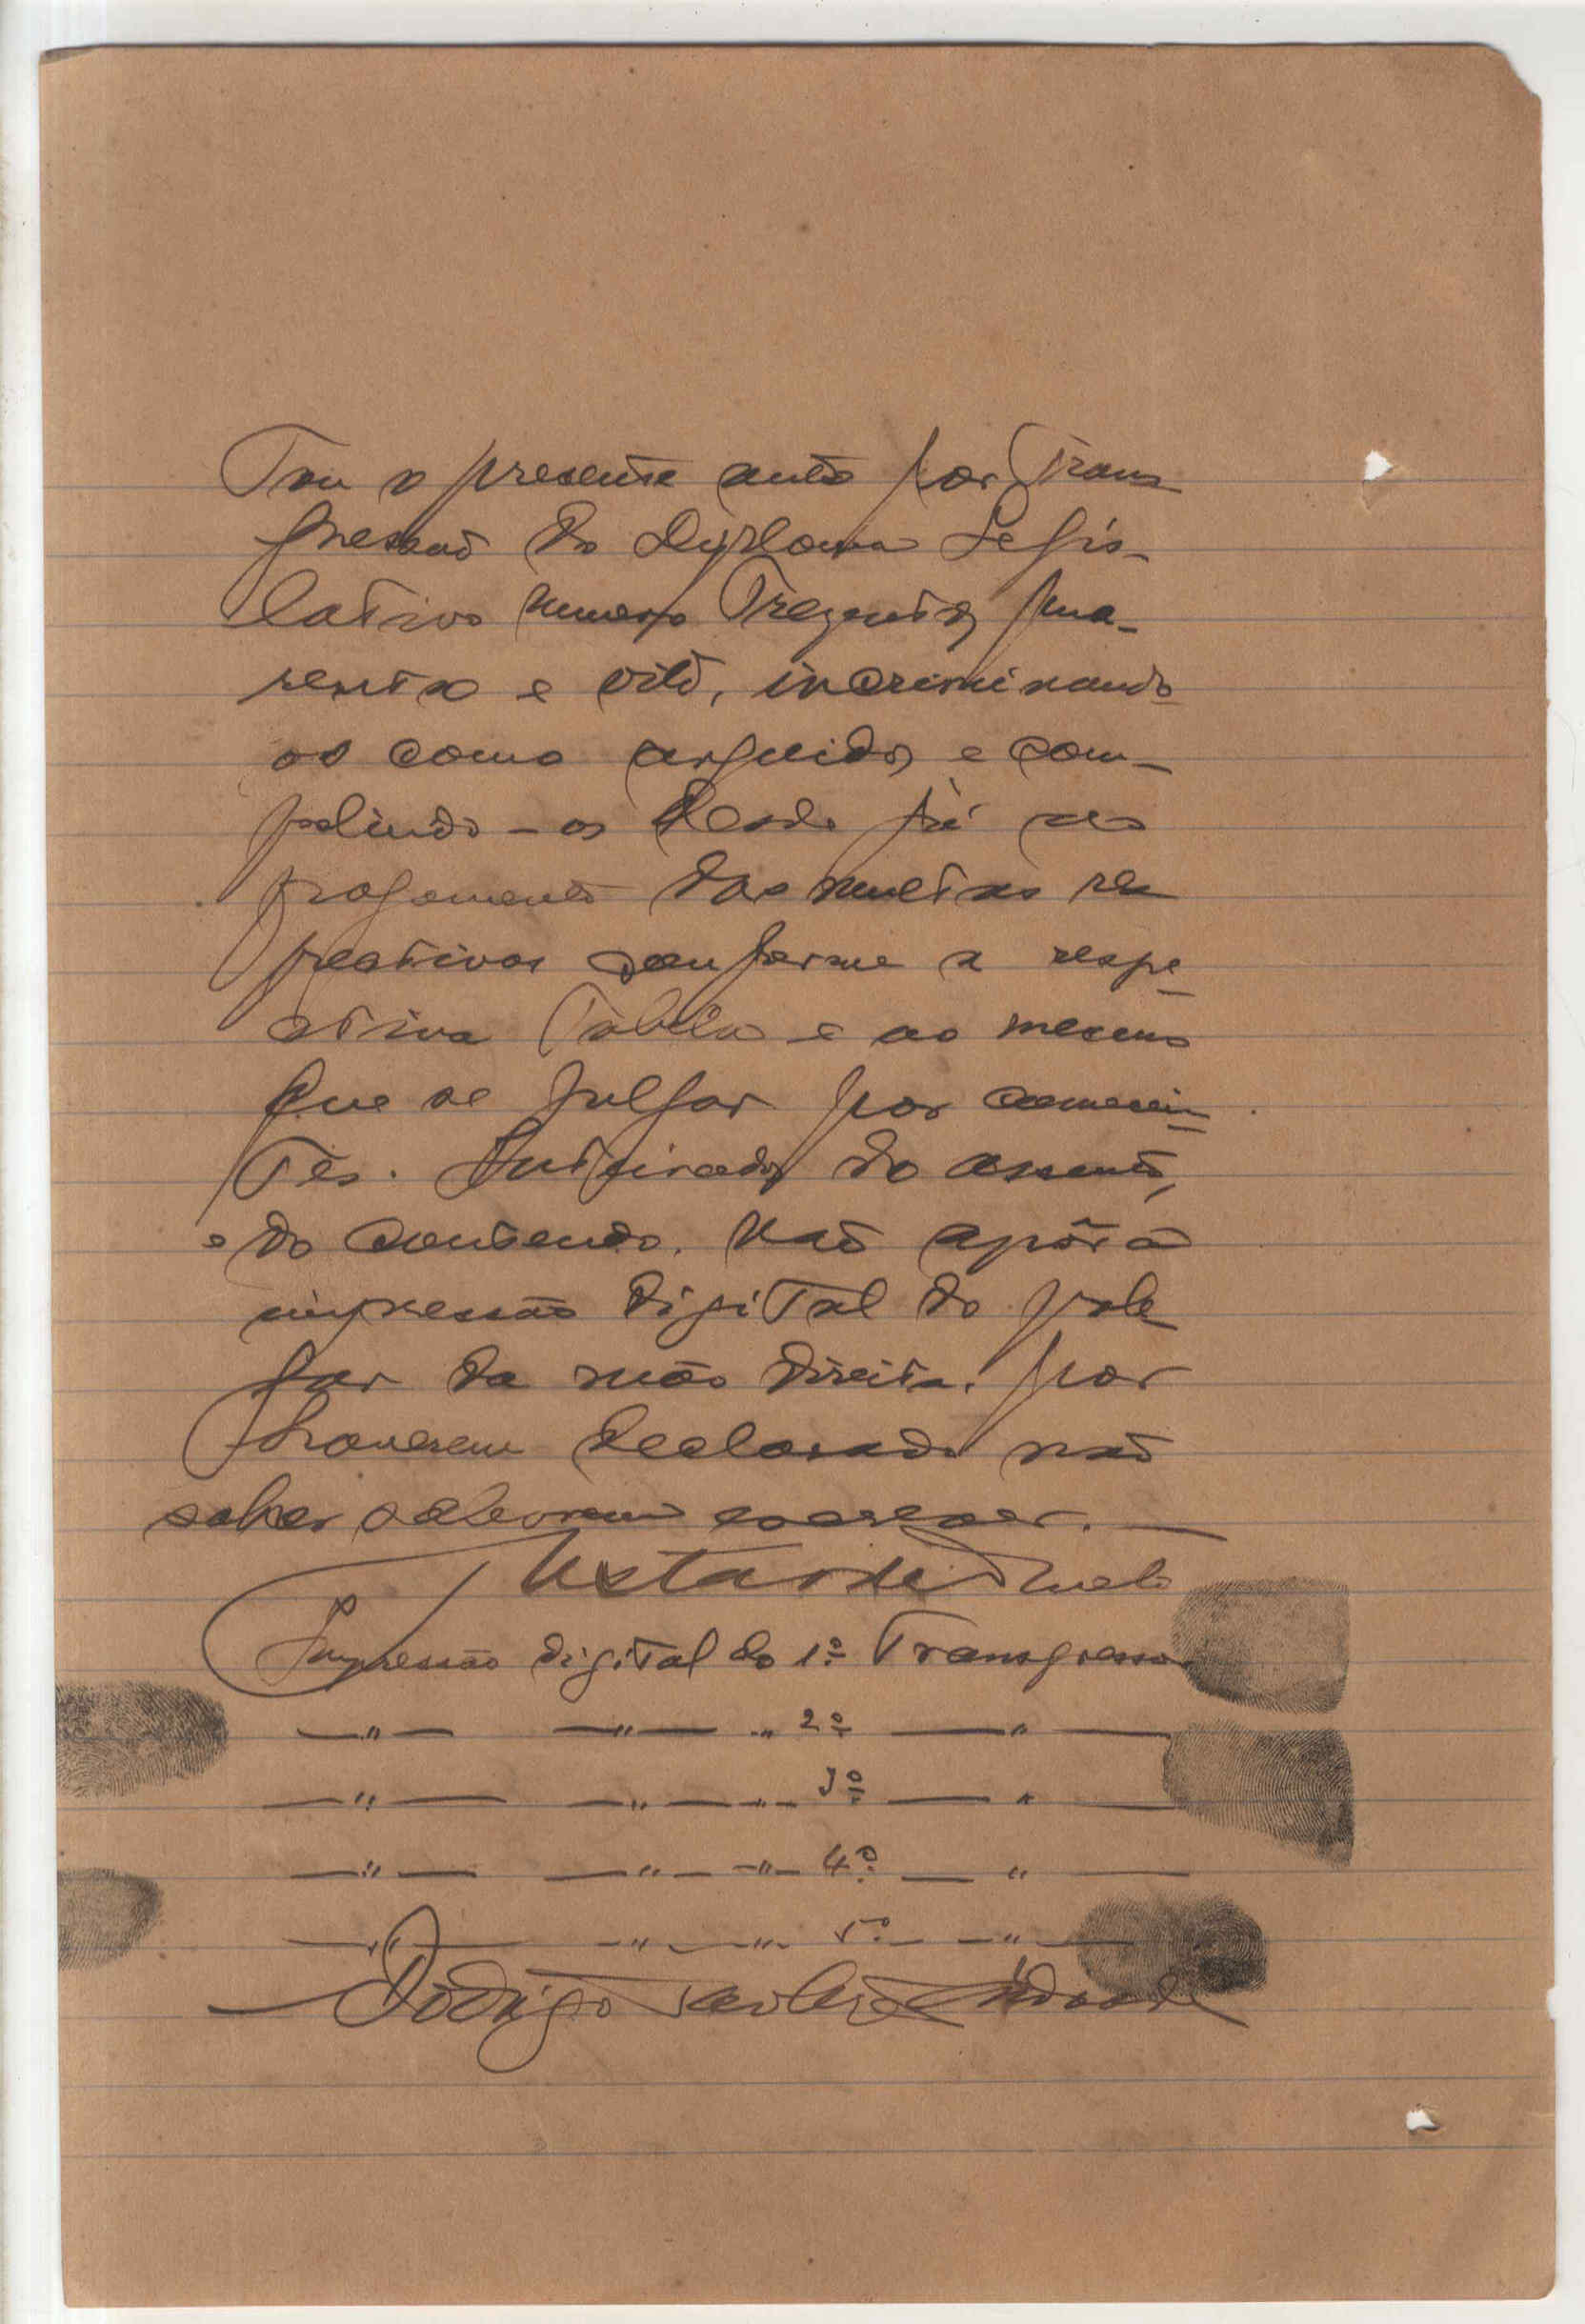 o presente auto por Trans
gressão do Diploma Legis-
lativo numero Trezentos qua-
renta e oito, incriminando
os como arguidos e com-
pelindo-os desde já ao
pagamento das multas res
pectivas conforme a respe
ctiva Tabela e ao mesmo
que se julgar por
do assunto,
e do conteudo. Vaõ apôr a
impressão digital do pole
gar da mão direita. por
haverem declarado não
saber escrever.
Impressão digital do 1º Transgressor
—"— —"— " 2º — " —
—"— —"— " 3º — " —
—"— —"— " 4º — " —
—"— —"— " 5º — " —
Rodrigo